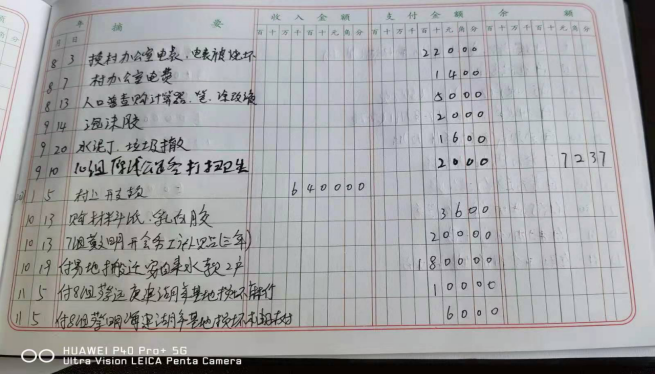 年 摘 要 收入金额 支付金额 余 额
月 日 百十万千百十元角分 百十万千百十元角分 百十万千百十元角分
8 3 接村办公室电表、电表被烧坏 22000
8 7 村办公室电费 1400
8 13 人口普查购计算器、笔、涂改液 5000
9 14 泡沫胶 2000
9 20 水泥丁、垃圾撤 1600
9 10 10组 公路 打扫卫生 2000 7237
1 5 村上开支款 640000
10 13 购材料纸、乳白胶 3600
10 13 7组黄明开会务工 (三年) 20000
10 19 付易地搬迁安 集水款2户 180000
11 5 付8组蔡远 基地损坏 10000
11 5 付8组蔡明海 基地损坏 6000
HUAWEI P40 Pro+ 5G
Ultra Vision LEICA Penta Camera